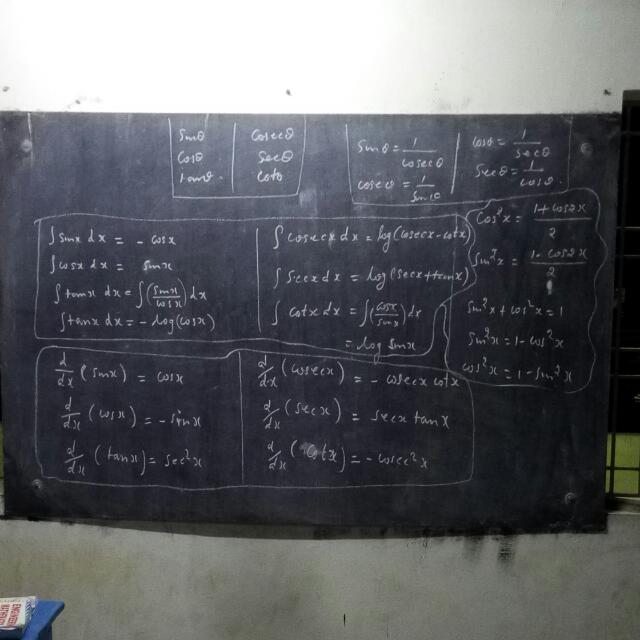 sinθ | cosecθ
cosθ | secθ
tanθ. | cotθ
sinθ = 1/cosecθ
cosecθ = 1/sinθ
cosθ = 1/secθ
secθ = 1/cosθ.
∫sinx dx = - cosx
∫cosx dx = sinx
∫tanx dx = ∫(sinx/cosx)dx
∫tanx dx = - log(cosx)
∫cosecx dx = log(cosecx-cotx)
∫secx dx = log(secx+tanx)
∫cotx dx = ∫(cosx/sinx)dx
= log sinx
cos²x = 1+cos2x/2
sin²x = 1-cos2x/2
sin²x + cos²x = 1
sin²x = 1-cos²x
cos²x = 1-sin²x
d/dx (sinx) = cosx
d/dx (cosx) = -sinx
d/dx (tanx) = sec²x
d/dx (cosecx) = - cosecx cotx
d/dx (secx) = secx tanx
d/dx (cotx) = -cosec²x